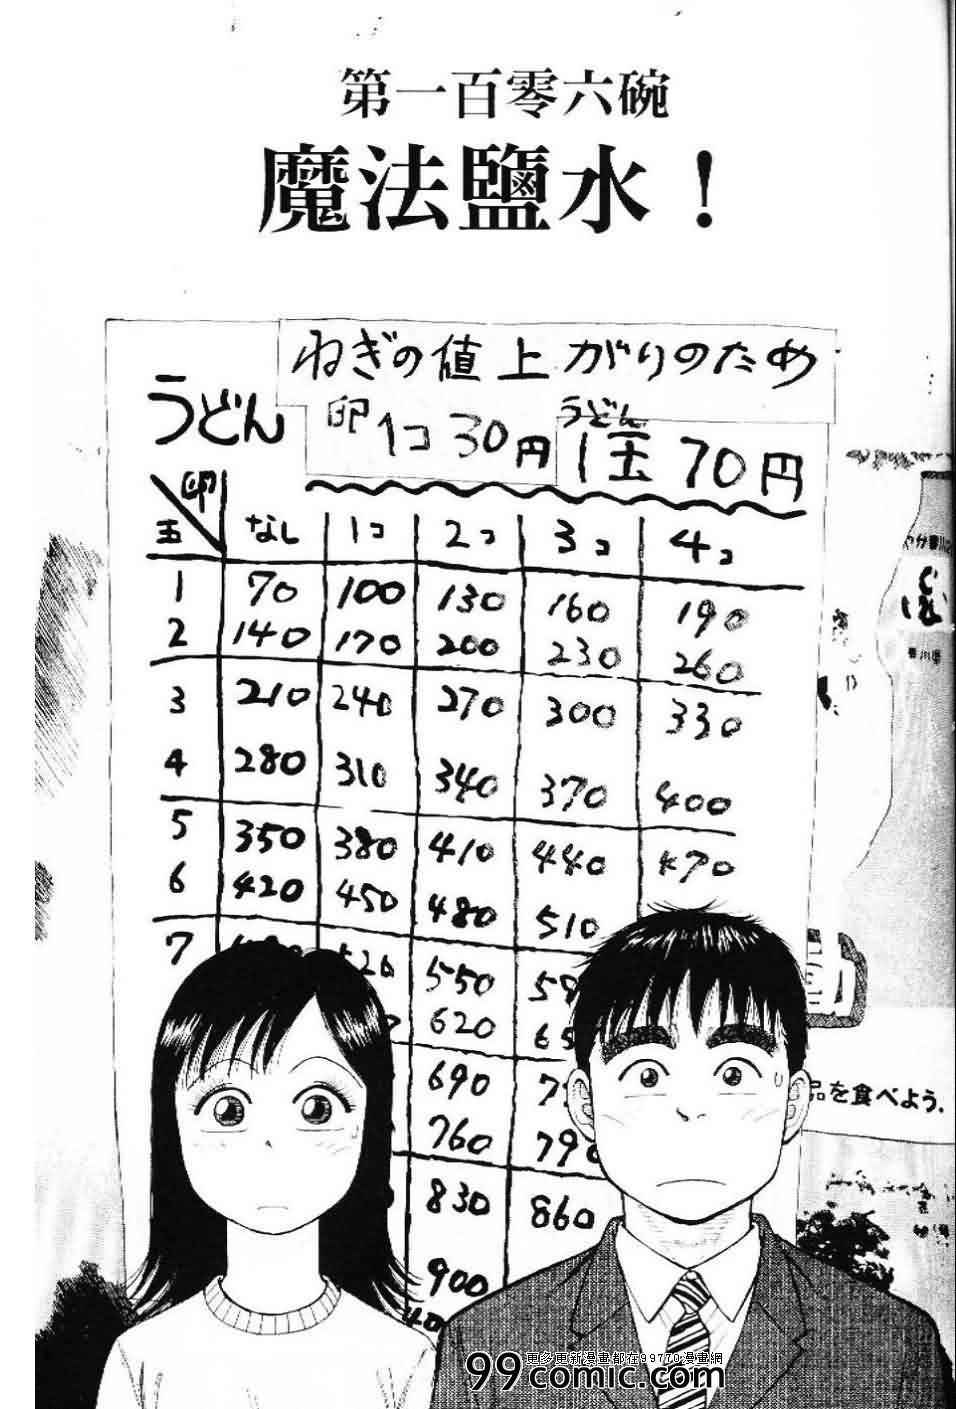 第一百零六碗
魔法鹽水！
ねぎの値上がりのため
うどん
卵1コ30円
うどん
1玉70円
卵
玉 なし 1コ 2コ 3コ 4コ
1 70 100 130 160 190
2 140 170 200 230 260
3 210 240 270 300 330
4 280 310 340 370 400
5 350 380 410 440 470
6 420 450 480 510
7 550
620
690
760 790
830 860
900
香川県
品を食べよう.
更多更新漫畫都在99770漫畫網
99comic.com